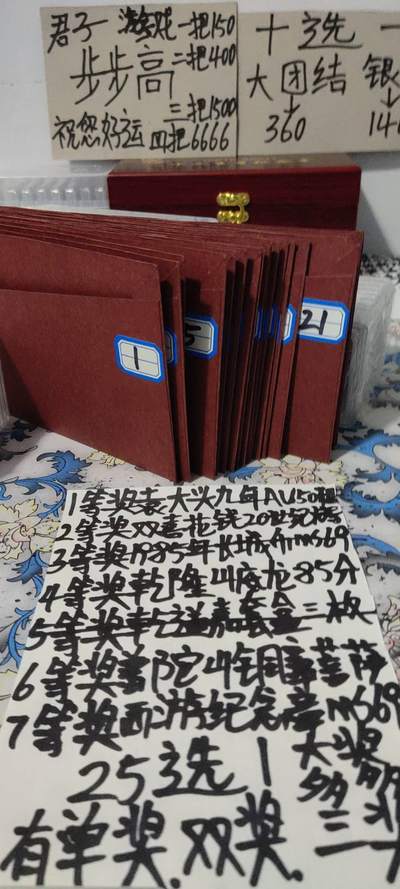 君子 游戏 一把150
步步高 二把400
三把1500
祝您好运 四把6666
十选一
大团结 银
360 14
1
5
21
1等奖袁大头九年AU50
2等奖双喜花钱20
3等奖1985年长城币MS69
4等奖乾隆山底龙85分
5等奖乾道嘉 三枚
6等奖普陀山铜章菩萨
7等奖西游纪念章MS69
25选1 大奖
有单奖.双奖.三